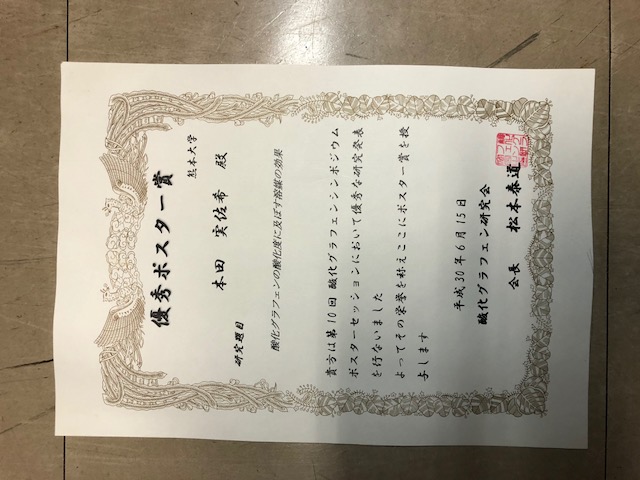 優秀ポスター賞
熊本大学
本田 実佐希 殿
研究題目
酸化グラフェンの酸化度に及ぼす溶媒の効果
貴方は第10回 酸化グラフェンシンポジウム
ポスターセッションにおいて優秀な研究発表
を行ないました
よってその栄誉を称えここにポスター賞を授
与します
平成30年6月15日
酸化グラフェン研究会
会長 松本泰道